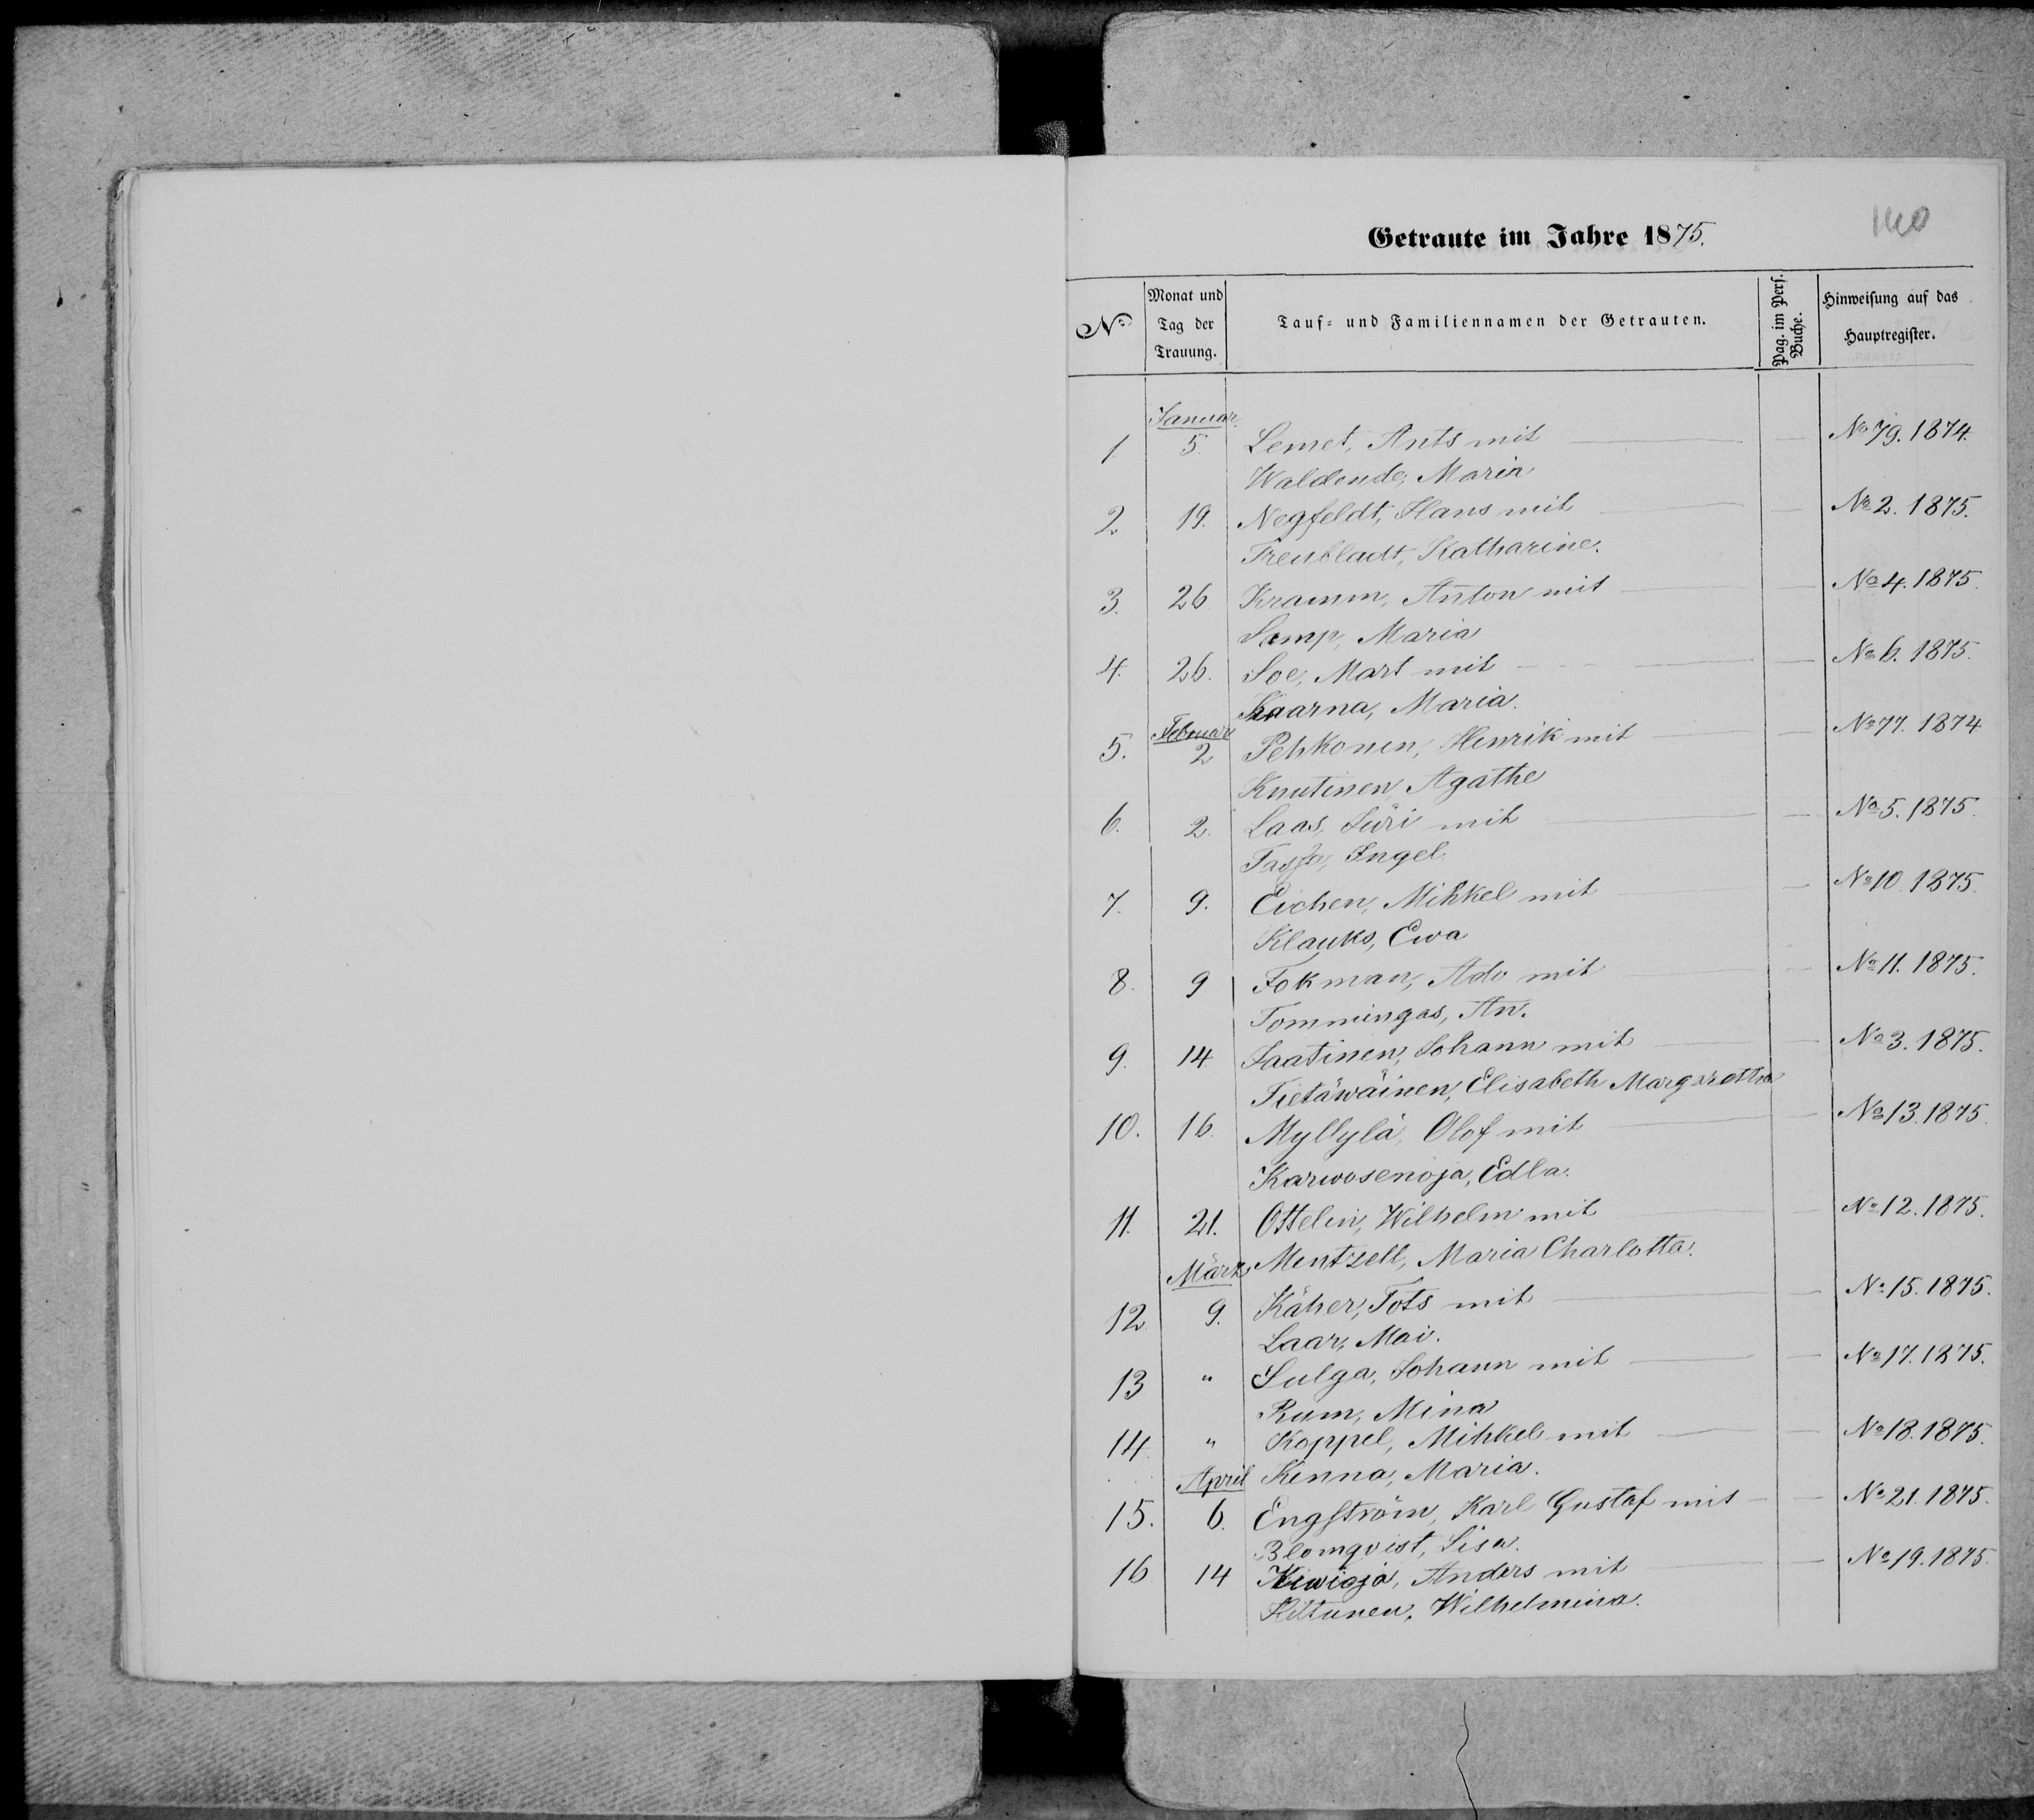 140
Getraute im Jahre 1875.
No Monat und Tag der Trauung. Tauf- und Familiennamen der Getrauten. Pag. im Pers. Buche. Hinweisung auf das Hauptregister.
Januar
1 5. Lemet, Ants mit No 79. 1874.
Waldende, Maria
2 19. Negfeldt, Hans mit No 2. 1875.
Treubladt, Katharine.
3. 26 Kramm, Anton mit No 4. 1875.
Samp, Maria
4. 26. Soe, Mart mit No 6. 1875.
Kaarna, Maria.
Februar
5. 2 Pehkonen, Henrik mit No 77. 1874
Knutinen Agathe
6. 2. Laas, Jüri mit No 5. 1875.
Ingel.
7. 9. Eichen, Mihkel mit No 10. 1875.
Klauks, Ewa
8. 9 Fokman, Ado mit No 11. 1875.
Tommingas, An.
9. 14. Saatinen, Johann mit No 3. 1875.
Tietäwäinen, Elisabeth Margaretha
10. 16. Myllylä, Olof mit No 13. 1875
Karwosenoja, Edla.
11. 21. Ottelin, Wilhelm mit No 12. 1875.
März Mentzell, Maria Charlotta.
12 9. Käher, Tots mit No 15. 1875.
Laar, Mai.
13 " Sulga, Johann mit No 17. 1875.
Rum, Mina
14. " Koppel, Mihkel mit No 18. 1875.
April Kenna, Maria.
15. 6. Engström, Karl Gustaf mit No 21. 1875.
Blomqvist, Lisa.
16 14 Kiwioja, Anders mit No 19. 1875.
Kittunen, Wilhelmina.